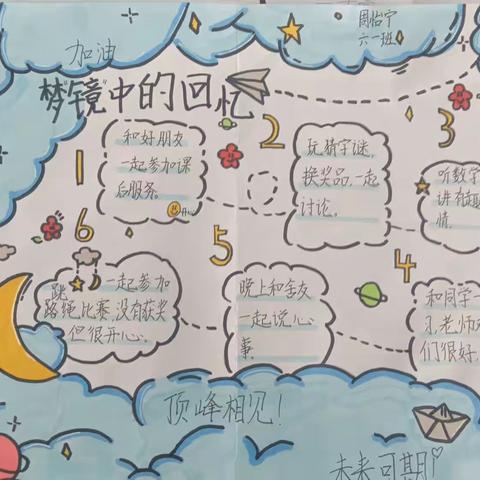 周怡宁
六一班
加油
"梦"镜"中的回忆
1
和好朋友
一起参加课
后服务。
2
玩猜字谜,
换奖品,一起
讨论。
3
听数学
讲有趣
情。
4
和同学一
孔老师
们很好,
5
晚上和舍友
一起说心
事。
6
一起参加
跳
绳比赛,没有获奖
但很开心。
顶峰相见!
未来可期